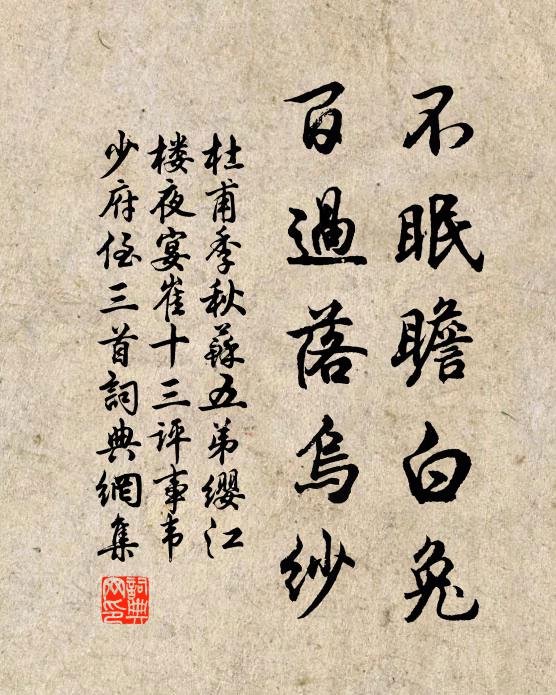 不眠瞻白兔
百過落烏紗
杜甫季秋蘇五弟纓江
楼夜宴崔十三評事韦
少府侄三首詞典網集
詞典
网印